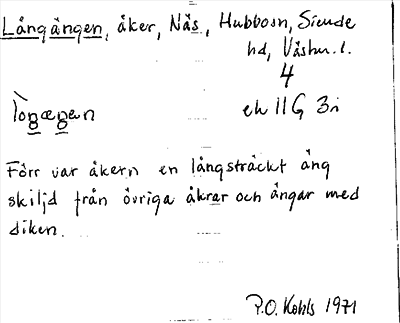 Långängen, åker, Näs, Hubbosn, Siende
hd, Våshm. l.
4
ek 11 G 3i
Förr var åkern en långsträckt äng
skiljd från övriga åkrar och ängar med
diken.
P.O. Kohls 1971